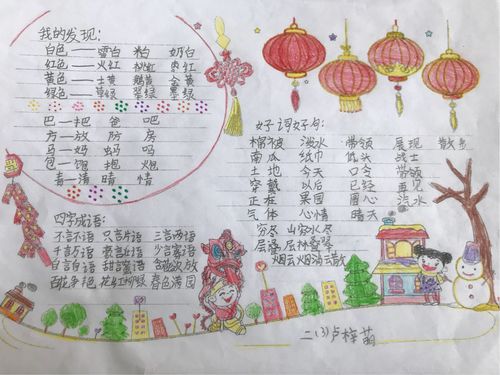 我的发现：
白色——雪白 粉白 奶白
红色——火红 桃红 枣红
黄色——土黄 鹅黄 金黄
绿色——草绿 翠绿 墨绿
巴—把 爸 吧
方—放 防 房
马—妈 蚂 吗
包—饱 抱 炮
青—清 晴 情
四字成语：
不言不语 只言片语 三言两语
千言万语 豪言壮语 少言寡语
自言自语 甜言蜜语
百花争艳 花红柳绿 春色满园
好词好句：
棉被 泼水 带领 展现 散步
南瓜 纸巾 低头 战士
土地 今天 口令 带领
穿戴 以后 已经 再见
正在 果园 圆心 泼水
气体 心情 晴天
穷尽 山穷水尽
层叠 层林叠翠
烟云 烟消云散
二(3)卢梓萌